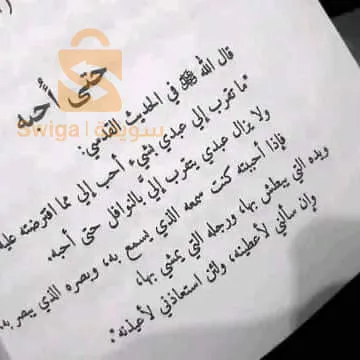 حتى أحبه
Swiga | سويقة
قال الله ﷻ في الحديث القدسي:
"ما تقرب إلي عبدي بشيء أحب إلي مما افترضته عليه
ولا يزال عبدي يتقرب إلي بالنوافل حتى أحبه،
فإذا أحببته كنت سمعه الذي يسمع به، وبصره الذي يبصر به،
ويده التي يبطش بها، ورجله التي يمشي بها،
وإن سألني لأعطينه، ولئن استعاذني لأعيذنه".